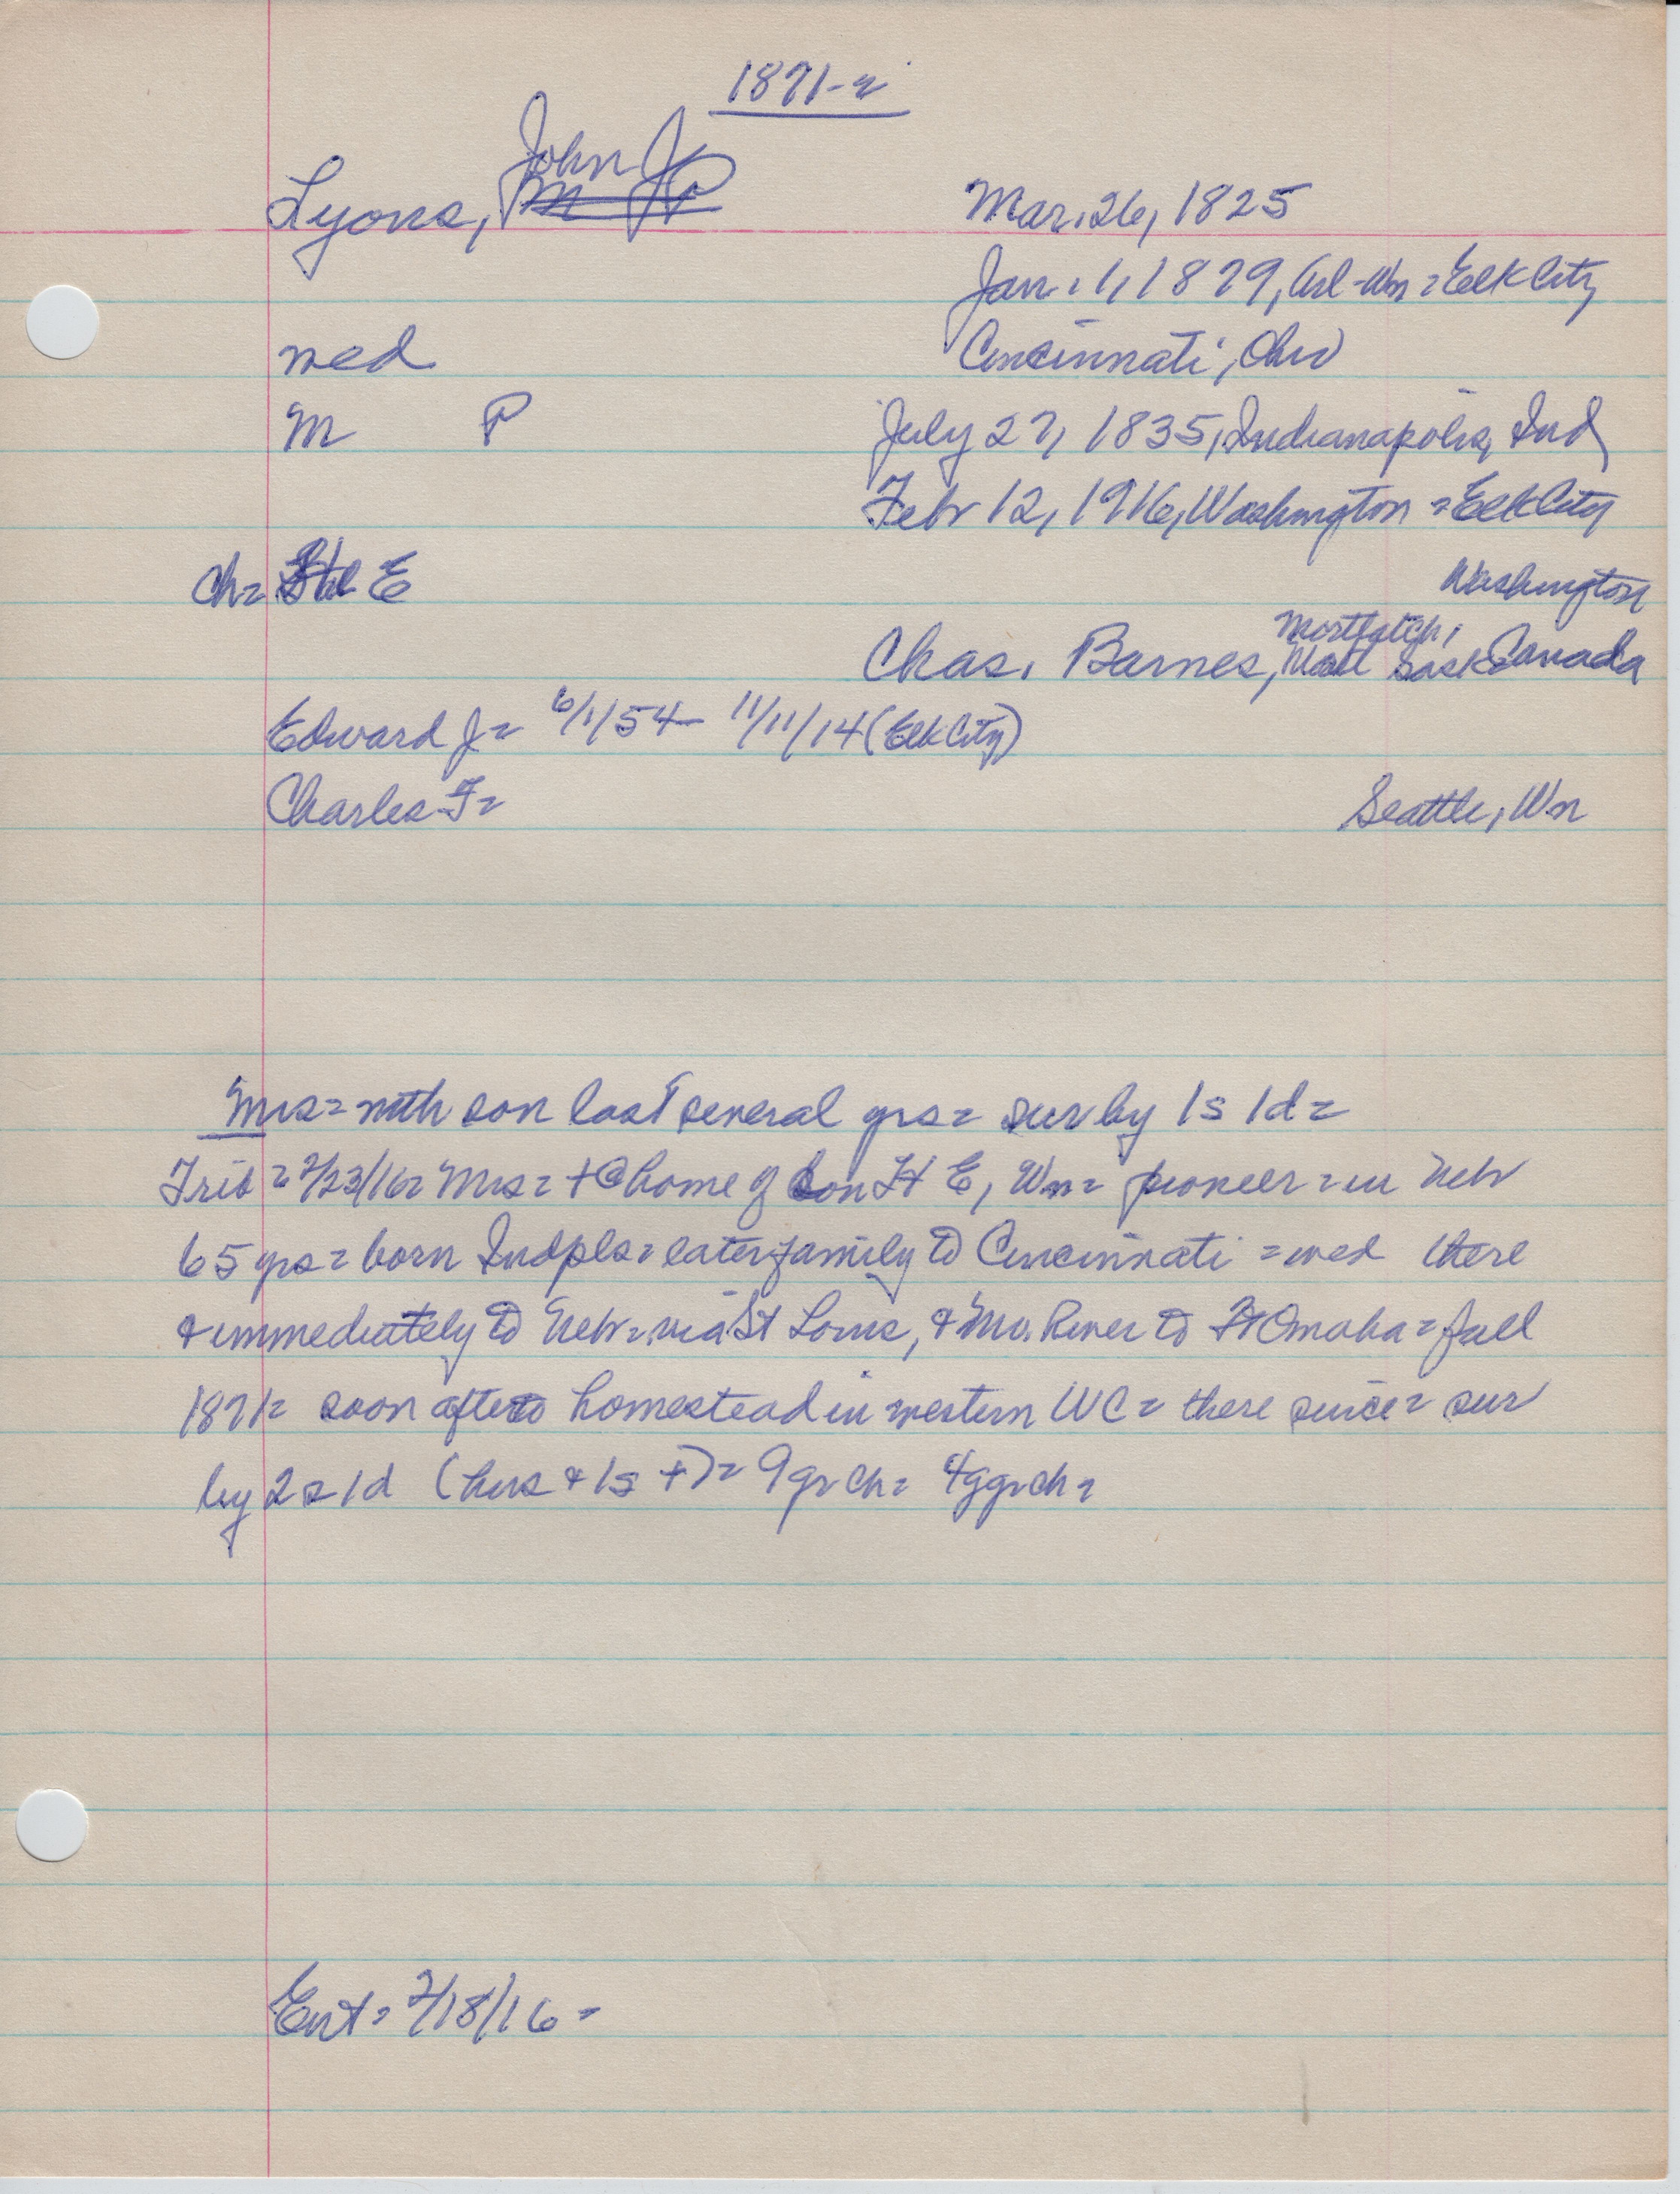 1871-2
John J
Lyons, M P Mar. 26, 1825
Jan. 1, 1879, Arl-Wn = Elk City
wed Cincinnati, Ohio
M P July 27, 1835, Indianapolis, Ind
Febr 12, 1916, Washington = Elk City
Ch= E Washington
Mortlatch,
Chas. Barnes, Sask Canada
Edward J= 6/1/54 - 11/11/14 (Elk City)
Charles F= Seattle, Wn
Mrs= with son last several yrs= sur by 1s 1d=
Trib = 2/23/16= Mrs= + @ home of son H E, Wn= pioneer = in Nebr
65 yrs= born Indpls= later family to Cincinnati = wed there
& immediately to Nebr= via St Louis, & Mo. River to Omaha = fall
1871= soon after to homestead in western WC= there since= sur
by 2s 1d (hus & 1s +)= 9 gr ch= 4 ggr ch=
Ent= 2/18/16=